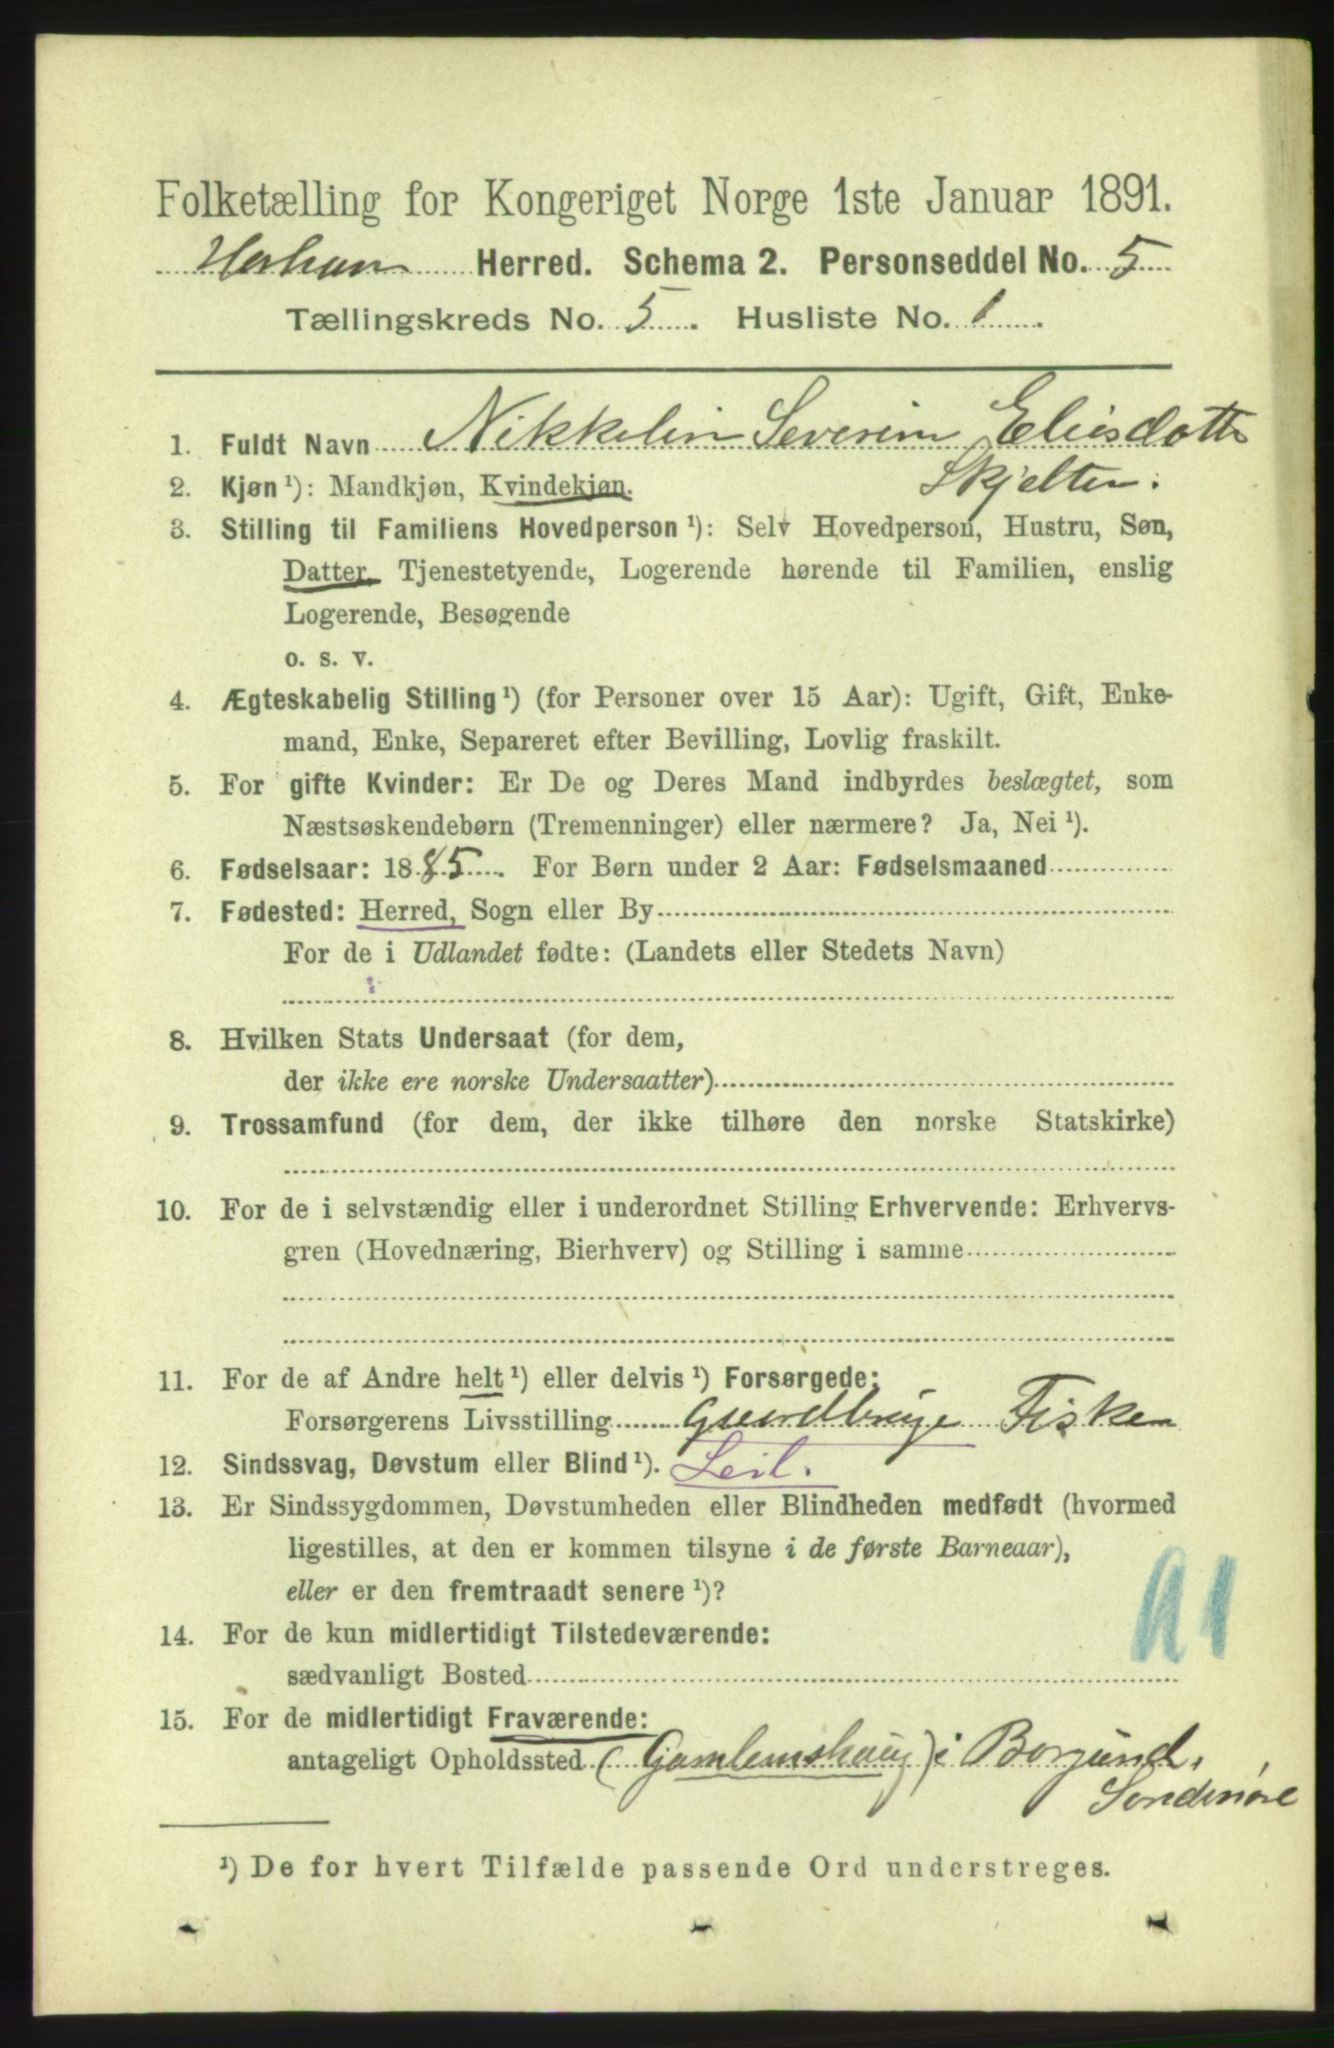 Folketælling for Kongeriget Norge 1ste Januar 1891.
Harham Herred. Schema 2. Personseddel No. 5
Tællingskreds No. 5. Husliste No. 1.
1. Fuldt Navn Nikkelin Severine Eliisdotter
Skjelten.
2. Kjøn ¹): Mandkjøn, Kvindekjøn.
3. Stilling til Familiens Hovedperson ¹): Selv Hovedperson, Hustru, Søn,
Datter, Tjenestetyende, Logerende hørende til Familien, enslig
Logerende, Besøgende
o. s. v.
4. Ægteskabelig Stilling ¹) (for Personer over 15 Aar): Ugift, Gift, Enke-
mand, Enke, Separeret efter Bevilling, Lovlig fraskilt.
5. For gifte Kvinder: Er De og Deres Mand indbyrdes beslægtet, som
Næstsøskendebørn (Tremenninger) eller nærmere? Ja, Nei ¹).
6. Fødselsaar: 1885. For Børn under 2 Aar: Fødselsmaaned
7. Fødested: Herred, Sogn eller By
For de i Udlandet fødte: (Landets eller Stedets Navn)
8. Hvilken Stats Undersaat (for dem,
der ikke ere norske Undersaatter)
9. Trossamfund (for dem, der ikke tilhøre den norske Statskirke)
10. For de i selvstændig eller i underordnet Stilling Erhvervende: Erhvervs-
gren (Hovednæring, Bierhverv) og Stilling i samme
11. For de af Andre helt ¹) eller delvis ¹) Forsørgede:
Forsørgerens Livsstilling Gaardbruger Fisker
12. Sindssvag, Døvstum eller Blind ¹). Leil.
13. Er Sindssygdommen, Døvstumheden eller Blindheden medfødt (hvormed
ligestilles, at den er kommen tilsyne i de første Barneaar),
eller er den fremtraadt senere ¹)?
14. For de kun midlertidigt Tilstedeværende:
sædvanligt Bosted
15. For de midlertidigt Fraværende:
antageligt Opholdssted (Gamlemshaug) i Borgund,
Søndmøre
¹) De for hvert Tilfælde passende Ord understreges.